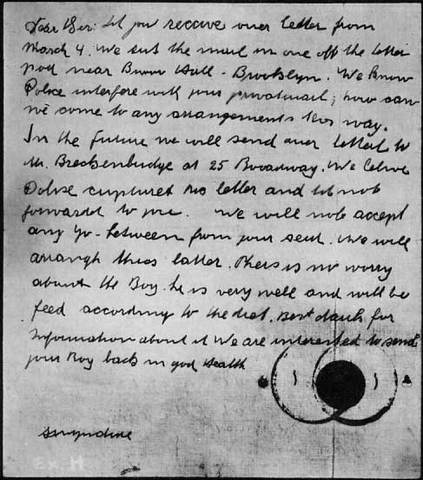 Dear Sir: Did you receive ouer letter from
March 4. We sent the mail in one off the letter
pox near Burro Hall - Brooklyn. We know
Police interfere with your privatmail; how can
we come to any arrangements this way.
In the future we will send ouer letters to
Mr. Breckenbridge at 25 Broadway. We belive
Polise cuptured letter and did not
forwardet to you. We will not accept
any go-between from your sent. We will
arrangh thees latter. There is no worry
about the Boy. He is very well and will be
feed according to the diet. Best dank for
Information about it. We are interested to send
your Boy back in gud Health
singnature
EX. H